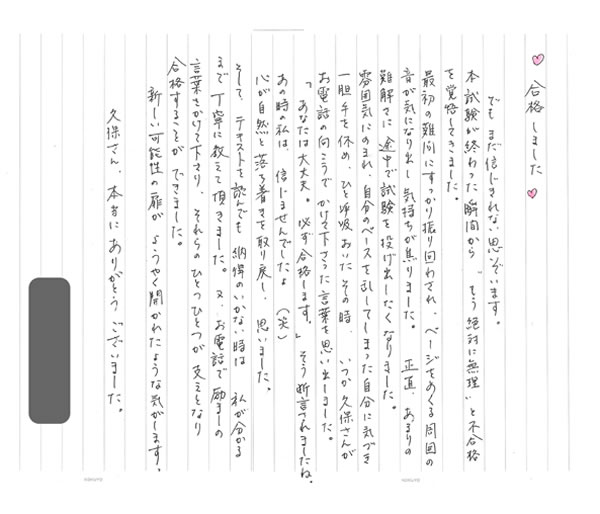 ♡ 合格しました ♡
でも まだ信じきれない思いでいます。
本試験が終わった瞬間から 「もう絶対に無理」と不合格
を覚悟してきました。
最初の難問にすっかり振り回わされ、ページをめくる周囲の
音が気になり出し 気持ちが焦りました。 正直、あまりの
難解さに 途中で試験を投げ出したくなりました。
雰囲気にのまれ、自分のペースを乱してしまった自分に気づき
一胆手を休め、ひと呼吸おいたその時、 いつか久保さんが
お電話の向こうで かけて下さった言葉を思い出しました。
「あなたは大丈夫。必ず合格します。」 そう断言されましたね。
あの時の私は、信じませんでしたよ (笑)
心が自然と落ち着きを取り戻し、思いました。
そして、テキストを読んでも 納得のいかない時は 私が分かる
まで丁寧に教えて頂きました。又、お電話で励ましの
言葉をかけて下さり、それらのひとつひとつが 支えとなり
合格することが できました。
新しい可能性の扉が ようやく開かれたような気がします。
久保さん、本当に ありがとう ございました。
KOKUYO
KOKUYO